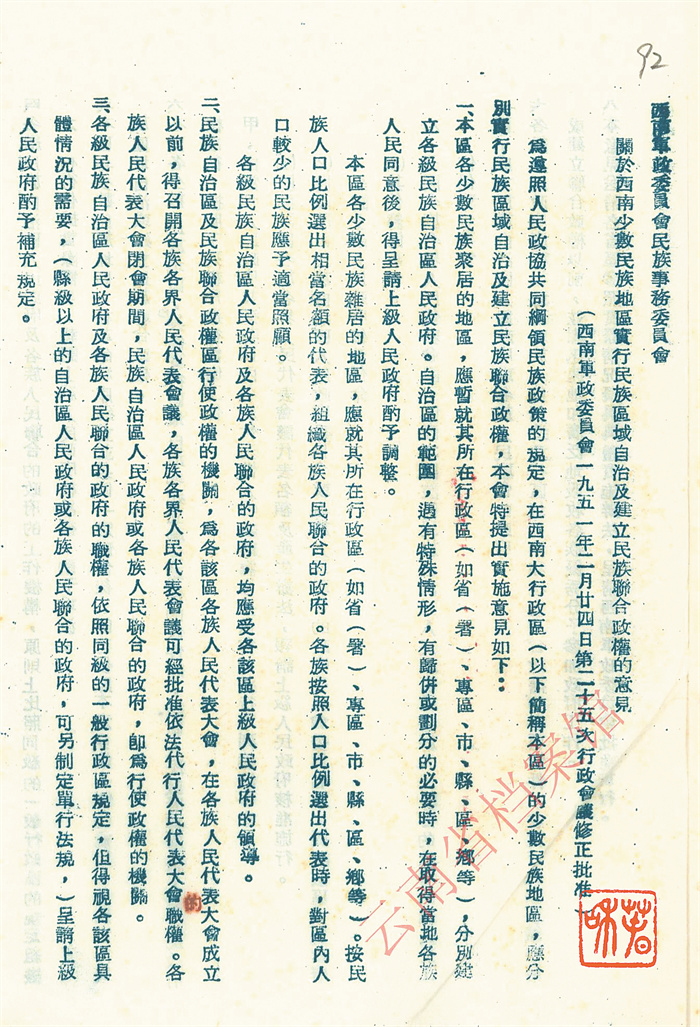 92
西南軍政委員會民族事務委員會
關於西南少數民族地區實行民族區域自治及建立民族聯合政權的意見
（西南軍政委員會一九五一年二月廿四日第二十五次行政會議修正批准）
爲遵照人民政協共同綱領民族政策的規定，在西南大行政區（以下簡稱本區）的少數民族地區，應分
別實行民族區域自治及建立民族聯合政權，本會特提出實施意見如下：
一、本區各少數民族聚居的地區，應暫就其所在行政區（如省（署）、專區、市、縣、區、鄉等），分別建
立各級民族自治區人民政府。自治區的範圍，遇有特殊情形，有歸併或劃分的必要時，在取得當地各族
人民同意後，得呈請上級人民政府酌予調整。
本區各少數民族雜居的地區，應就其所在行政區（如省（署）、專區、市、縣、區、鄉等）。按民
族人口比例選出相當名額的代表，組織各族人民聯合的政府。各族按照人口比例選出代表時，對區內人
口較少的民族應予適當照顧。
各級民族自治區人民政府及各族人民聯合的政府，均應受各該區上級人民政府的領導。
二、民族自治區及民族聯合政權區行使政權的機關，爲各該區各族人民代表大會，在各族人民代表大會成立
以前，得召開各族各界人民代表會議，各族各界人民代表會議可經批准依法代行人民代表大會的職權。各
族人民代表大會閉會期間，民族自治區人民政府或各族人民聯合的政府，卽爲行使政權的機關。
三、各級民族自治區人民政府及各族人民聯合的政府的職權，依照同級的一般行政區規定，但得視各該區具
體情況的需要，（縣級以上的自治區人民政府或各族人民聯合的政府，可另制定單行法規，）呈請上級
人民政府酌予補充規定。
云南省档案馆